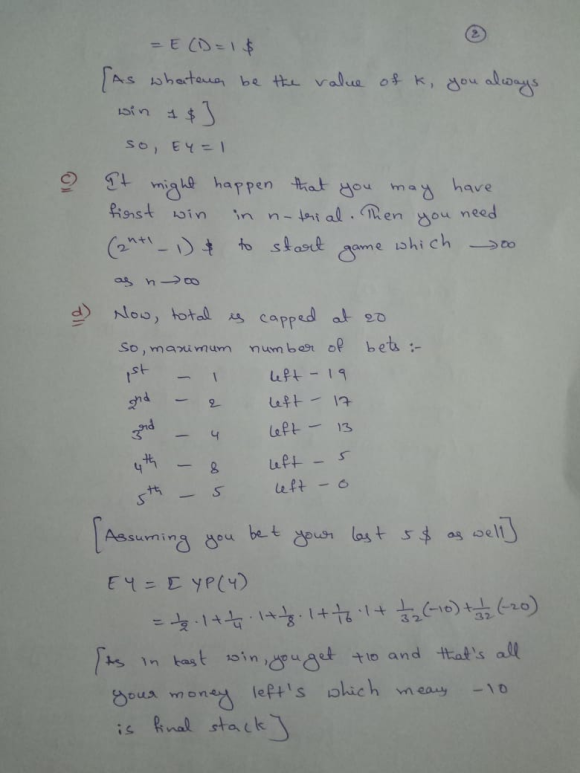 ②
= E (1) = 1 $
[As whatever be the value of k, you always
win 1 $]
so, EY = 1
c) It might happen that you may have
first win in n-trial. Then you need
(2^{n+1} - 1) $ to start game which → ∞
as n → ∞
d) Now, total is capped at 20
so, maximum number of bets :-
1st - 1 left - 19
2nd - 2 left - 17
3rd - 4 left - 13
4th - 8 left - 5
5th - 5 left - 0
[Assuming you bet your last 5 $ as well]
EY = Σ YP(Y)
= 1/2 · 1 + 1/4 · 1 + 1/8 · 1 + 1/16 · 1 + 1/32 (-10) + 1/32 (-20)
[As in last win, you get +10 and that's all
your money left's which means -10
is final stack]